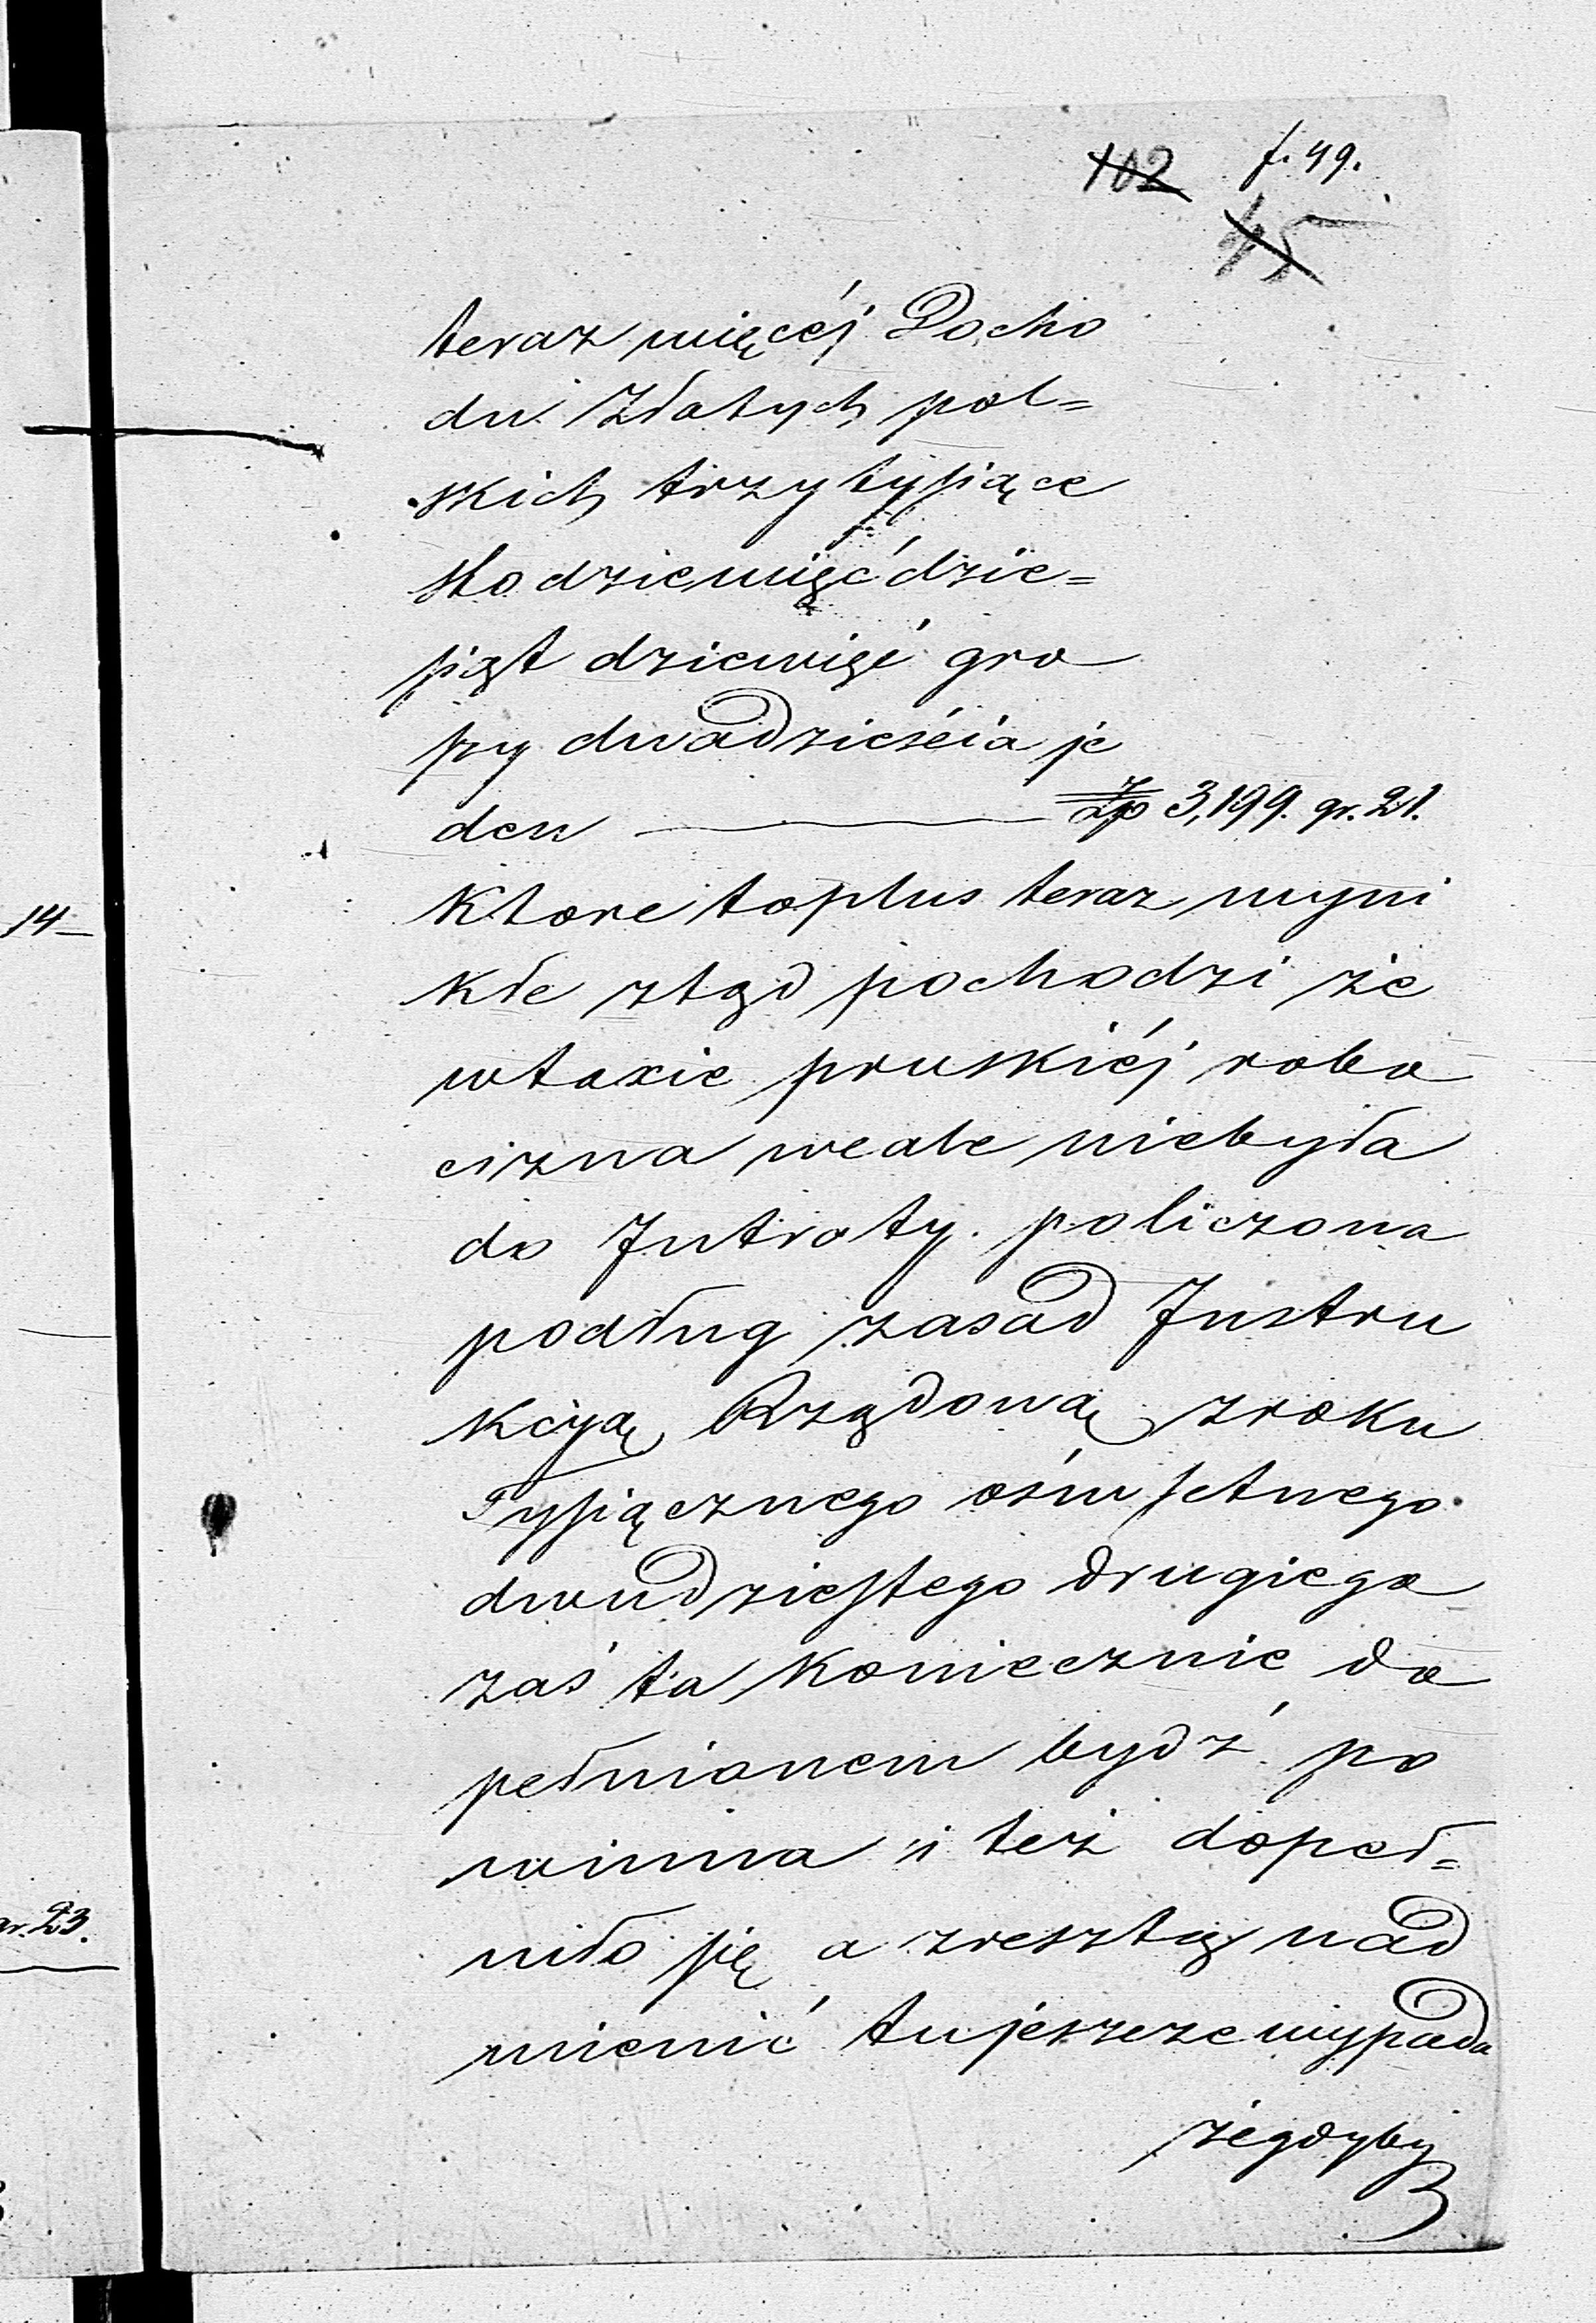 102 f. 49.
45
teraz więcéj Docho
du Złotych pol=
skich trzy tysiące
sto dziewięćdzie=
siąt dziewięć gro
szy dwadzieścia je
den Zp 3,199. gr. 21.
Ktore toplus teraz wyni
kłe ztąd pochodzi że
wtaxie pruskiéj robo
cizna wcale niebyła
do Intraty policzona
podług zasad Instru
kcyą Rządową zroku
Tysiącznego ośmsetnego
dwudziestego drugiego
zaś ta koniecznie do
pełnionem bydź po
winna i też dopeł=
niło się a zresztą nad
mienić tu jeszcze wypada
żegdyby
14
gr. 23.